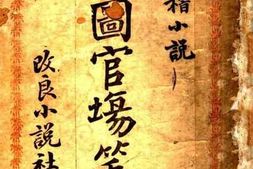 稽小説
圖官場笑
改良小説社